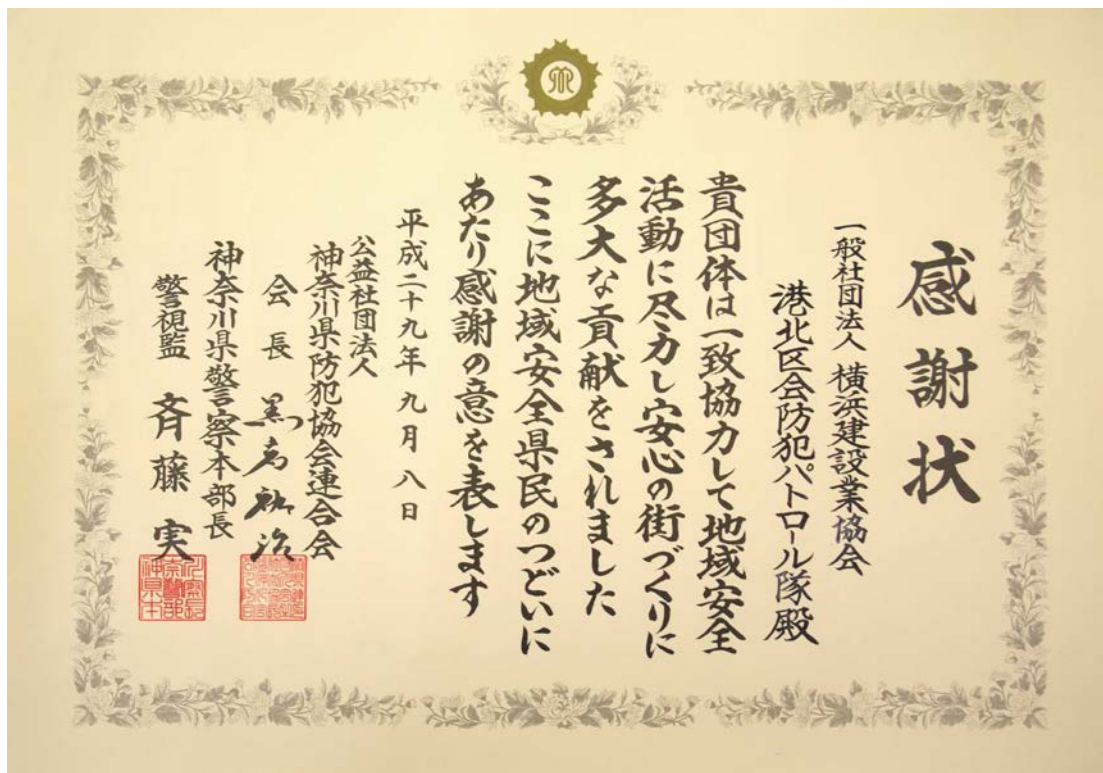 感謝状
一般社団法人 横浜建設業協会
港北区会防犯パトロール隊殿
貴団体は一致協力して地域安全
活動に尽力し安心の街づくりに
多大な貢献をされました
ここに地域安全県民のつどいに
あたり感謝の意を表します
平成二十九年九月八日
公益社団法人
神奈川県防犯協会連合会
会長
神奈川県警察本部長
警視監 斉藤実